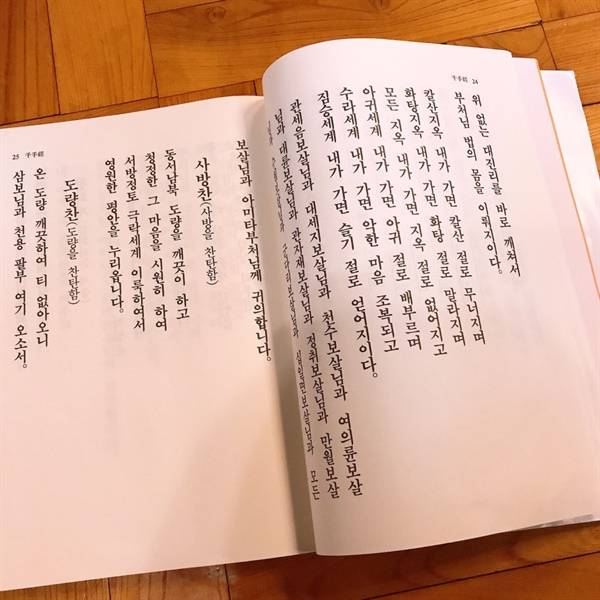 千手經 24
위 없는 대진리를 바로 깨쳐서
부처님 법의 몸을 이뤄지이다.
칼산지옥 내가 가면 칼산 절로 무너지며
화탕지옥 내가 가면 화탕 절로 말라지며
모든 지옥 내가 가면 지옥 절로 없어지고
아귀세계 내가 가면 아귀 절로 배부르며
수라세계 내가 가면 악한 마음 조복되고
짐승세계 내가 가면 슬기 절로 얻어지이다.
관세음보살님과 대세지보살님과 천수보살님과 여의륜보살
님과 대륜보살님과 관자재보살님과 정취보살님과 만월보살
님과 수월보살님과 군다리보살님과 십일면보살님과 모든
보살님과 아미타부처님께 귀의합니다.
사방찬(사방을 찬탄함)
동서남북 도량을 깨끗이 하고
청정한 그 마음을 시원히 하여
서방정토 극락세계 이룩하여서
영원한 평안을 누리옵니다.
도량찬(도량을 찬탄함)
온 도량 깨끗하여 티 없아오니
삼보님과 천용 팔부 여기 오소서.
25 千手經